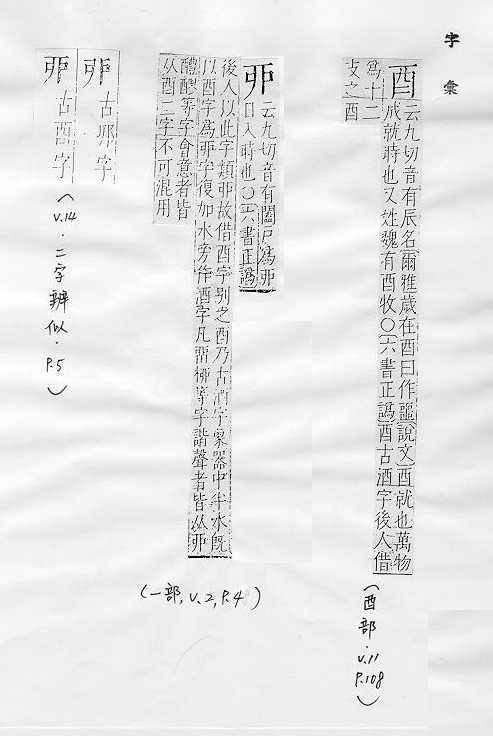 字彙
酉 云九切音有辰名(爾雅歲在酉曰作噩(說文)酉就也萬物
成就時也又姓魏有酉牧〇(六書正譌)酉古酒字後人借
爲十二
支之酉
(酉部.v.11 P.108)
丣 云九切音有闔戶爲丣
日入時也〇(六書正譌)
後人以此字類丣故借酉字别之酉乃古酒字象器中半水旣
以酉字爲丣字復加水旁作酒字凡畱桺等字諧聲者皆从丣
醴醪等字會意者皆
从酉二字不可混用
(一部,v.2,P.4)
古卯字
丣 古酉字
(v.14.二字辨似.P.5)